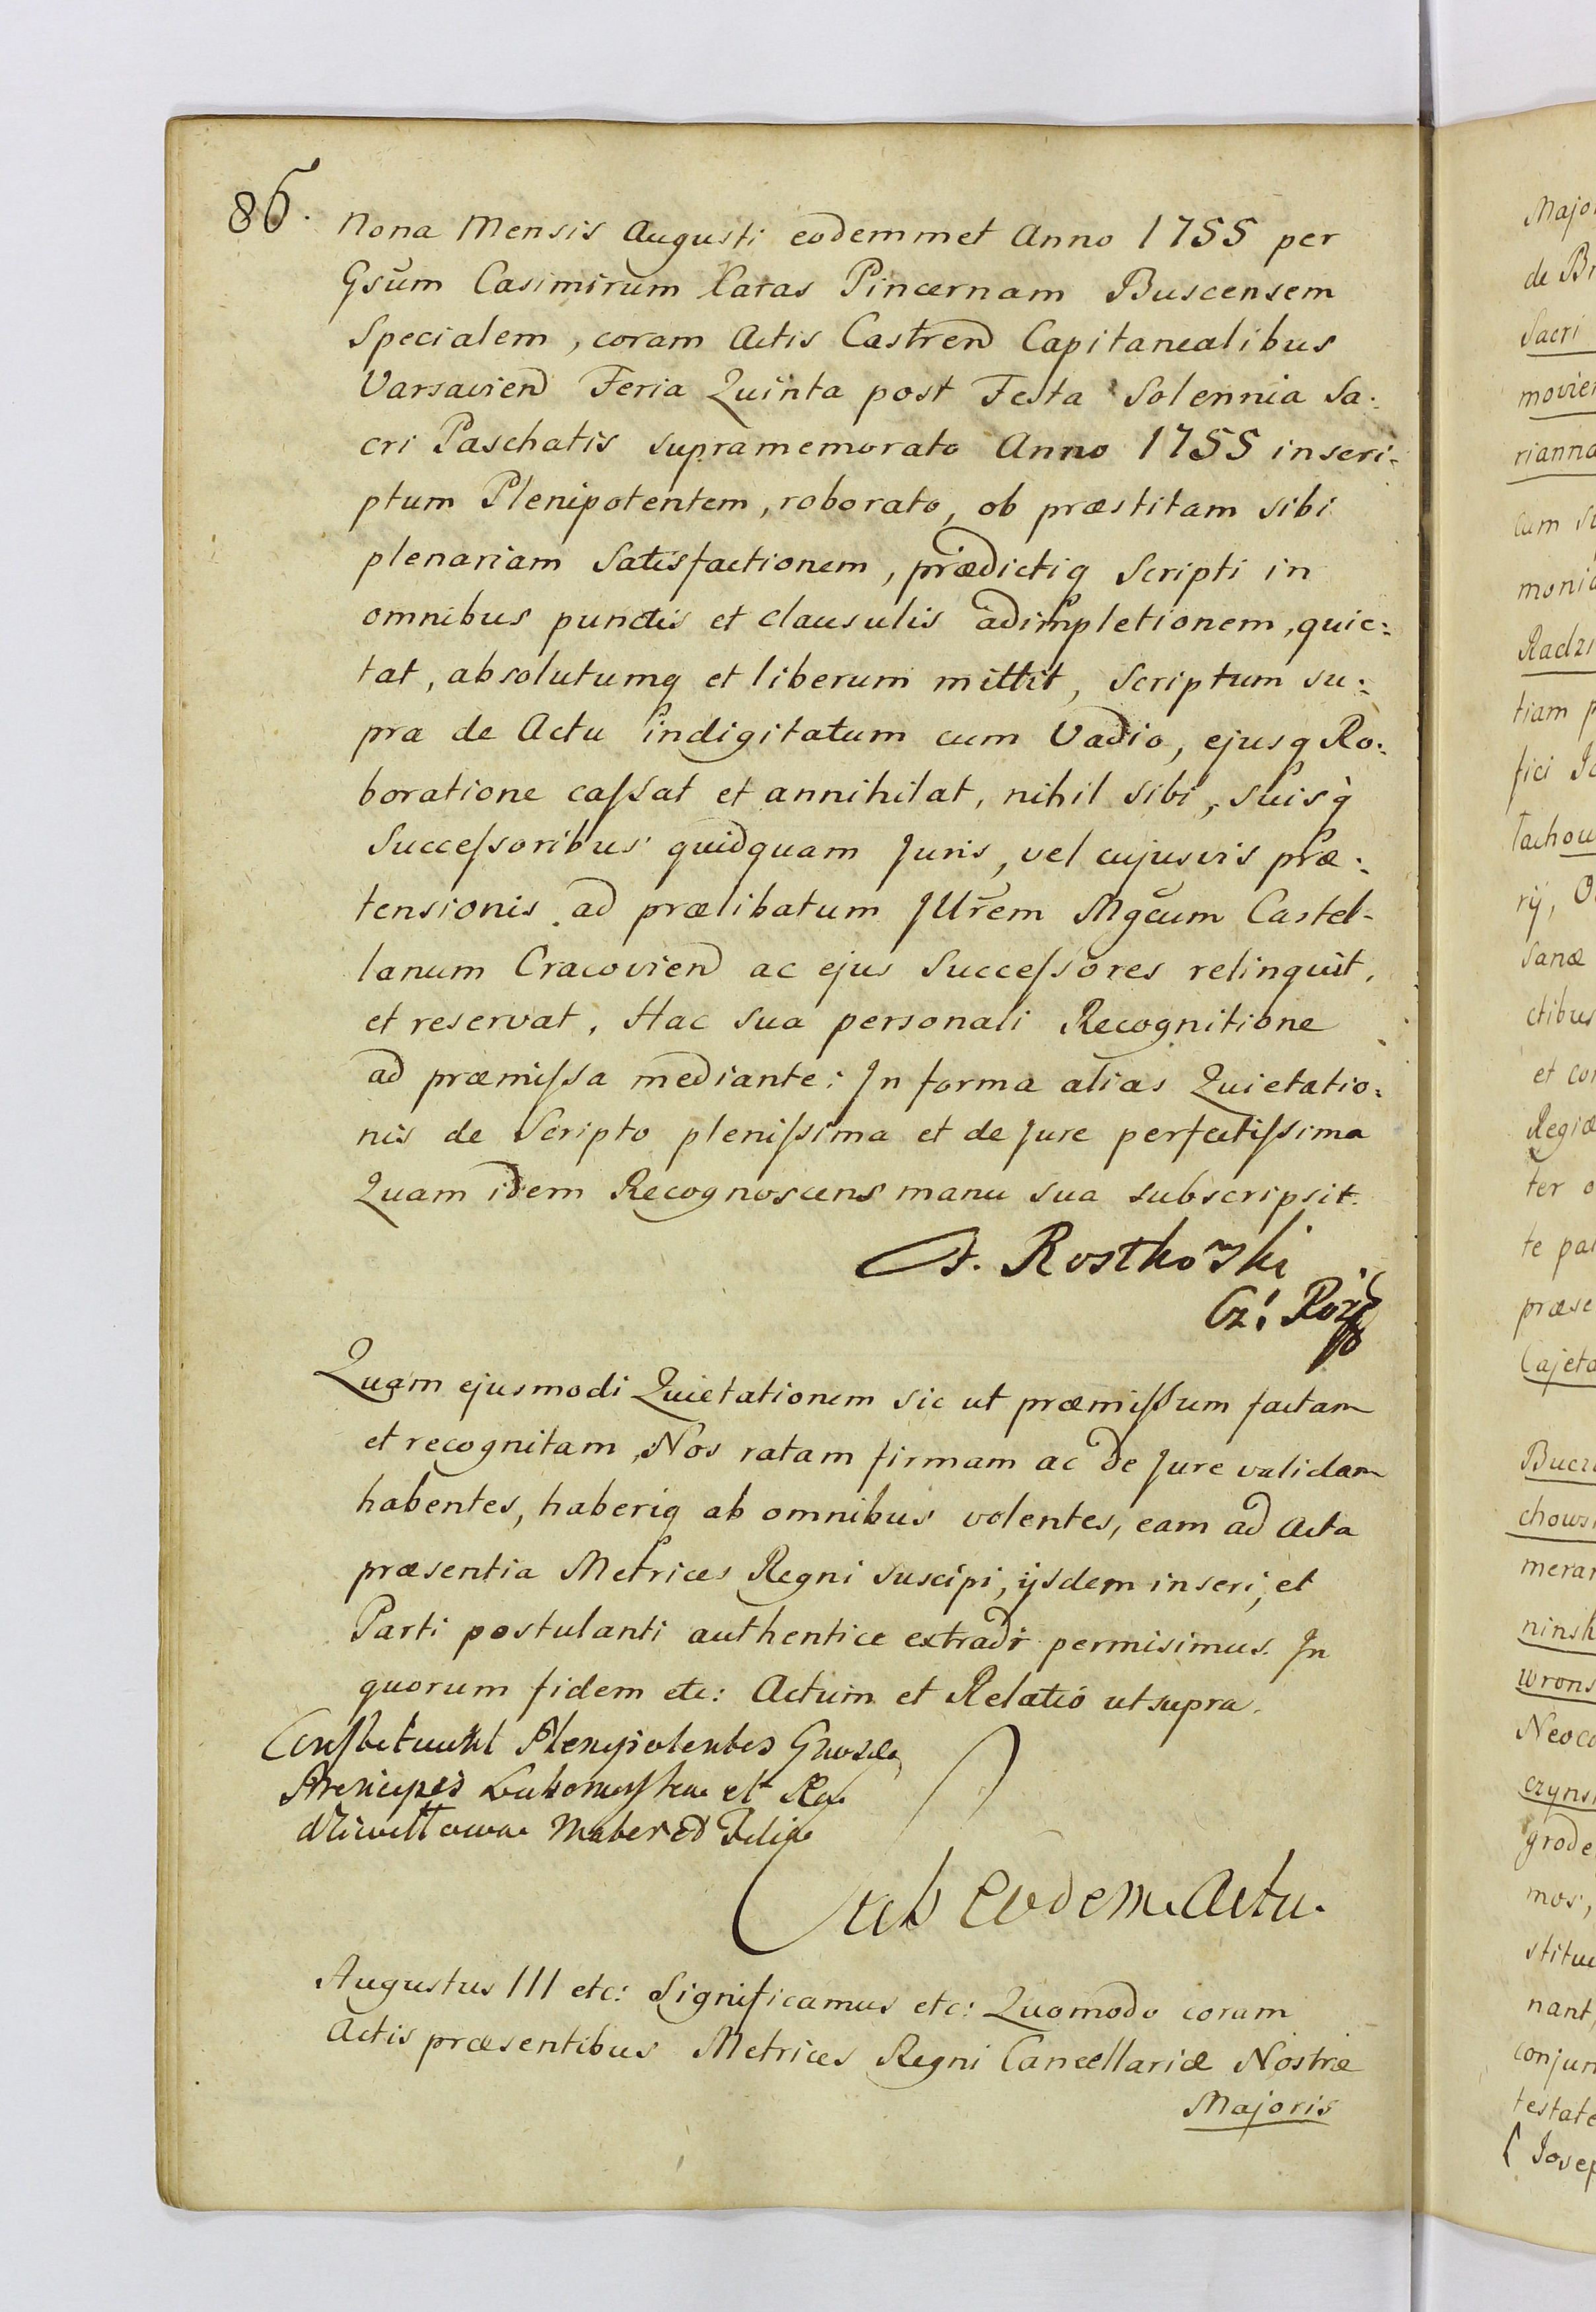 86.
Nona Mensis Augusti eodemmet Anno 1755 per
Gsum Casimirum Karas Pincernam Buscensem
Specialem, coram Actis Castren̄ Capitanealibus
Varsavien̄ Feria Quinta post Festa Solennia Sa:
cri Paschatis supramemorato Anno 1755 inscri:
ptum Plenipotentem, roborato, ob præstitam sibi
plenariam Satisfactionem, prædictiq Scripti in
omnibus punctis et clausulis adimpletionem, quie:
tat, absolutumq et liberum mittit, Scriptum su:
pra de Actu indigitatum cum Vadio, ejusq Ro:
boratione caſsat et annihilat, nihil sibi, suisq̀
Succeſsoribus quidquam Juris, vel cujusvis præ:
tensionis ad prælibatum Jllr̃em Mgcum Castel-
lanum Cracovien̄ ac ejus Succeſsores relinquit,
et reservat. Hac sua personali Recognitione
ad præmiſsa mediante: Jn forma alias Quietatio:
nis de Scripto pleniſsima et de Jure perfectiſsima
Quam idem Recognoscens manu sua subscripsit.
A. Rostkowski
Cz:
Quam ejusmodi Quietationem sic ut præmiſsum factam
et recognitam, Nos ratam firmam ac de Jure validam
habentes, haberiq ab omnibus volentes, eam ad Acta
præsentia Metrices Regni suscipi, ijsdem inseri, et
Parti postulanti authentice extradi permisimus. Jn
quorum fidem etc: Actum et Relatio ut supra.
Constituunt Plenipotentes
Principes et Ra
dziwiłłowa Mater et Filia
Sub Eodem Actu.
Augustus III etc: Significamus etc: Quomodo coram
Actis præsentibus Metrices Regni Cancellariæ Nostræ
Majoris
Major
de Br
Sacri
movien
rianna
cum
moni
Radzi
tiam p
fici
rij,
sanæ
ctibus
et con
Regiæ
ter o
te pa
præse
Cajeta
chows
merar
ninsk
wrons
Neoco
czyns
grode
mos,
stitue
nant,
conjun
testate
Josep